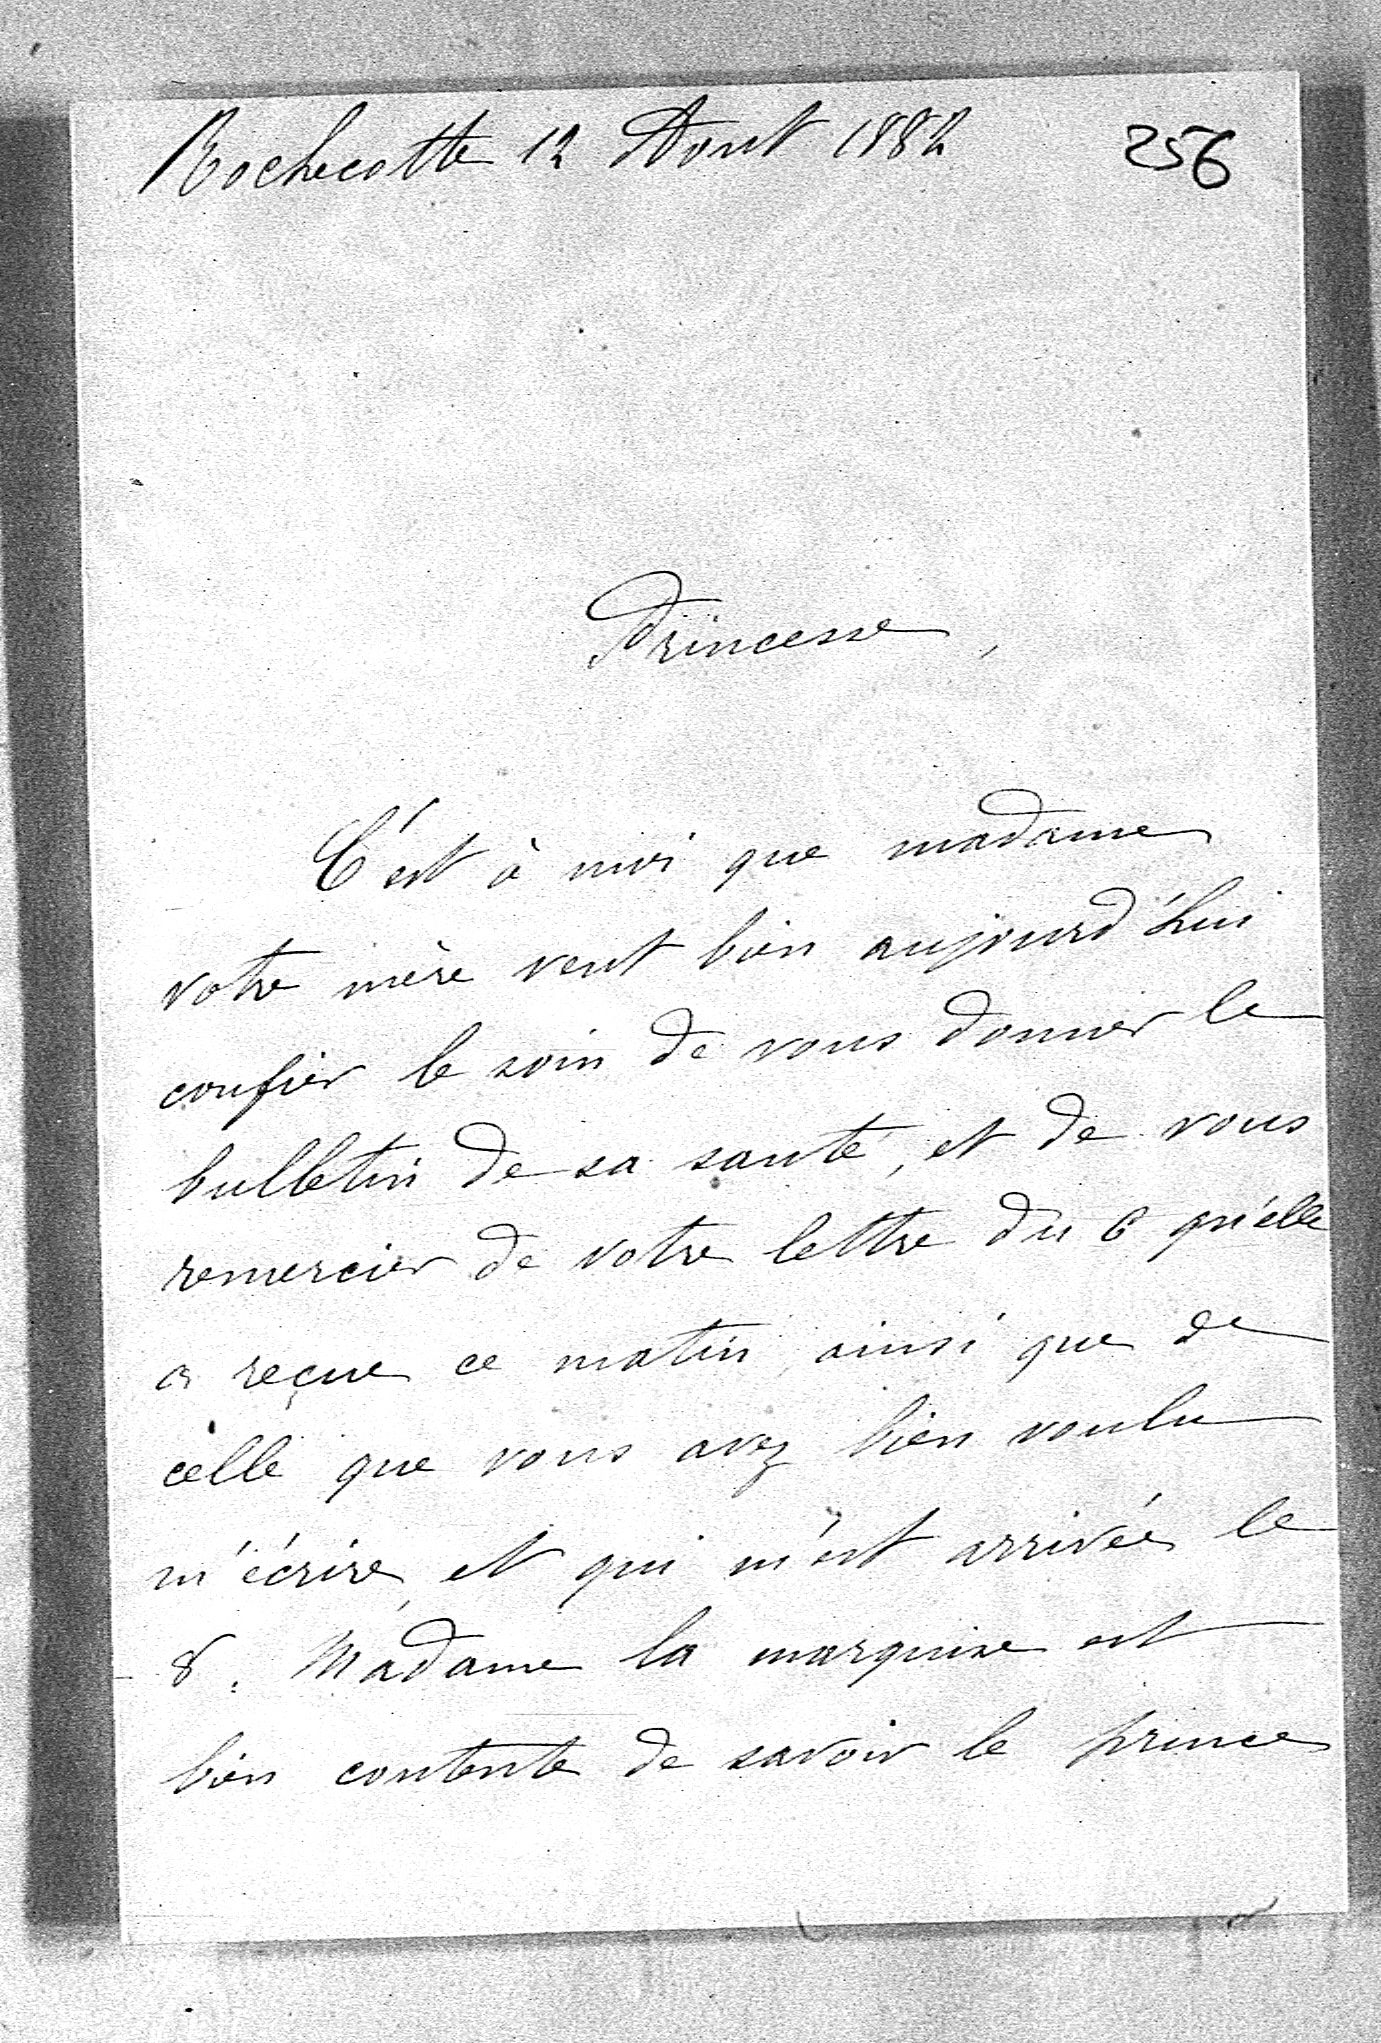 Rochecotte 12 Aout 1882
256
Princesse,
C'est à moi que madame
votre mère veut bien aujourd'hui
confier le soin de vous donner le
bulletin de sa santé, et de vous
remercier de votre lettre du 6 qu'elle
a reçue ce matin, ainsi que de
celle que vous avez bien voulu
m'écrire, et qui m'est arrivée le
8. Madame la marquise est
bien contente de savoir le prince